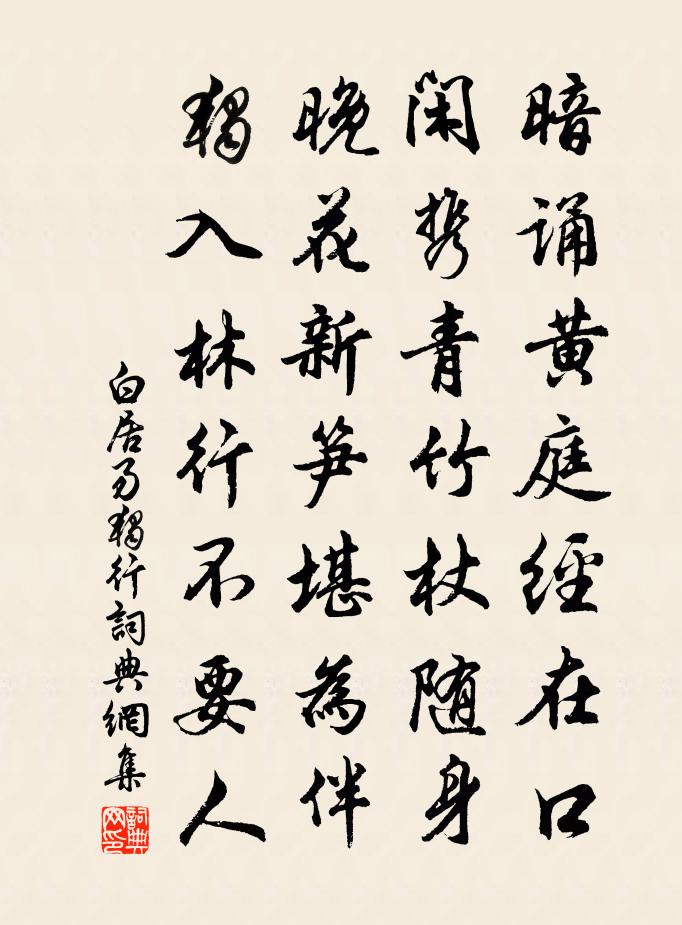 暗誦黄庭經在口
閑携青竹杖随身
晚花新笋堪為伴
獨入林行不要人
白居易獨行詞典網集
詞典網印